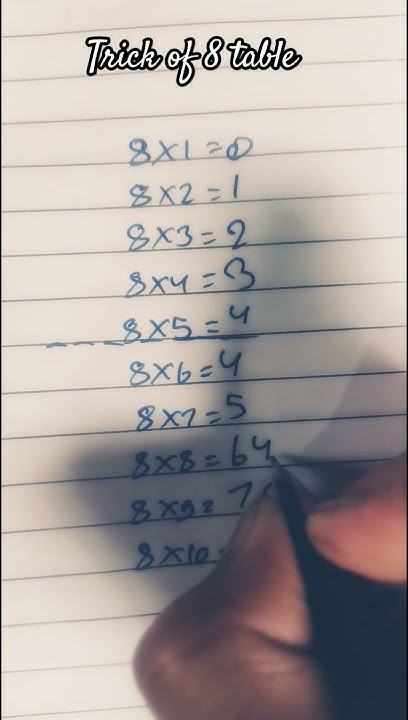 Trick of 8 table
8x1=0
8x2=1
8x3=2
8x4=3
8x5=4
8x6=4
8x7=5
8x8=64
8x9=7
8x10=